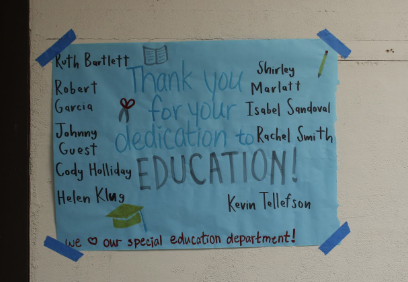 Ruth Bartlett
Robert
Garcia
Johnny
Guest
Cody Holliday
Helen Klug
Thank you
for your
dedication to
EDUCATION!
Shirley
Marlatt
Isabel Sandoval
Rachel Smith
Kevin Tellefson
We ♡ our special education department!